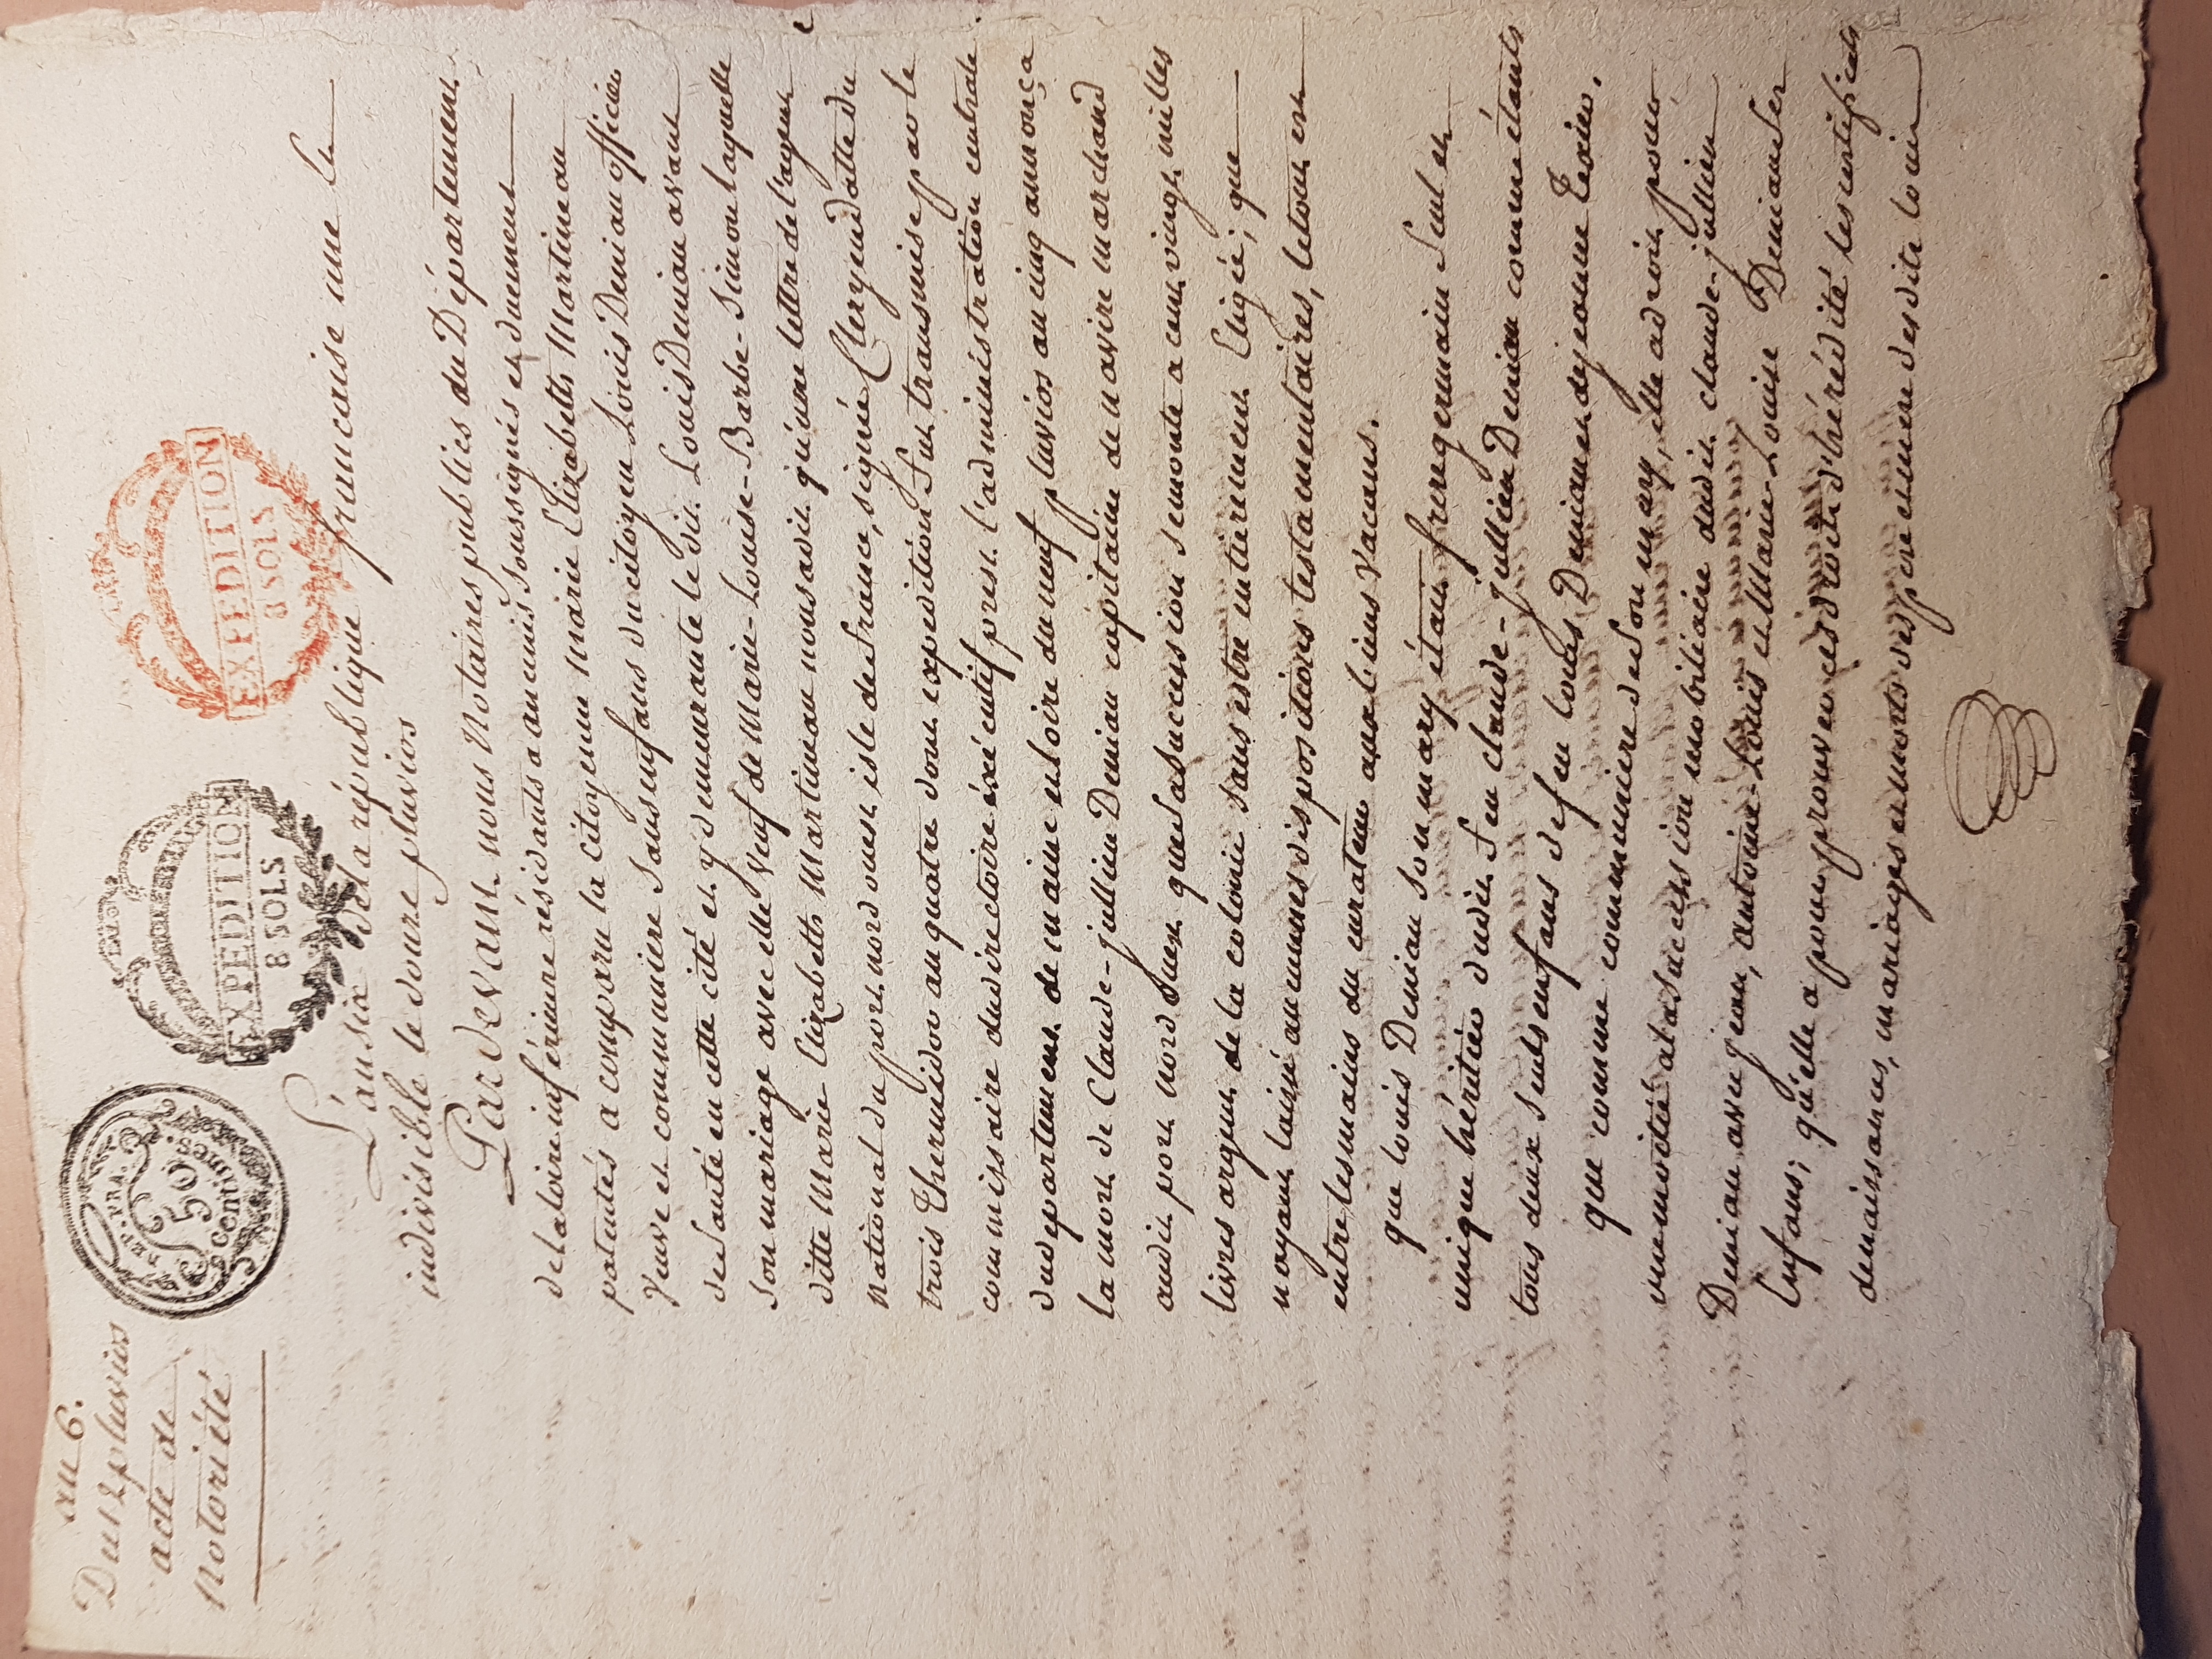 an 6.
Du 12 pluvios
acte de
Notoriété
REP. FRA.
50
centimes
EXPEDITION
8 SOLS
EXPEDITION
8 SOLS
L'an six de la république francaise une &
indivisible le douze pluvios
Pardevant nous Notaires publics du Département
de la loire inférieure résidants a ancenis soussignés et duement
patentés a comparu la citoyenne Marie Elizabeth Martineau
veuve et communiere sans enfans du citoyen Louis Deniau officier
de santé en cette cité et y demeurante le dit Louis Deniau avant
son mariage avec elle veuf de Marie-Louise-Barbe-Simon laquelle
ditte Marie Elizabeth Martineau nous a dit qu'une lettre de l'agent
national du port nord ouest isle de france, signée Clergend datte du
trois thermidor an quatre dont expedition fut transmise par le
commissaire du directoire éxécutif prest l'administration centrale
du departement de maine et loire du neuf pluvios an cinq annonça
la mort de Claude-jullien Deniau capitaine de navire marchand
audit port nord ouest que sa succession se monte a cent vingt milles
livres argent de la colonie sans estre entierement liquidé; que
n'ayant laissé aucunes dispositions testamentaires, le tout est
entre les mains du curateur aux biens vacans.
que louis Deniau son mary étant frere germain seul et
unique héritier dudit feu claude-jullien Deniau comme étants
tous deux seuls enfans de feu louis Deniau et de jeanne Texier.
que comme communiere de son mary, elle a droit pour
une motié a la succession mobiliaire dudit claude-jullien
Deniau avec jean, antoine-Louis et Marie-Louise Deniau ses
Enfans; qu'elle a pour prouver ces droits d'hérédité les certificats
de naissances, mariages et morts des pere et mere desdits louis